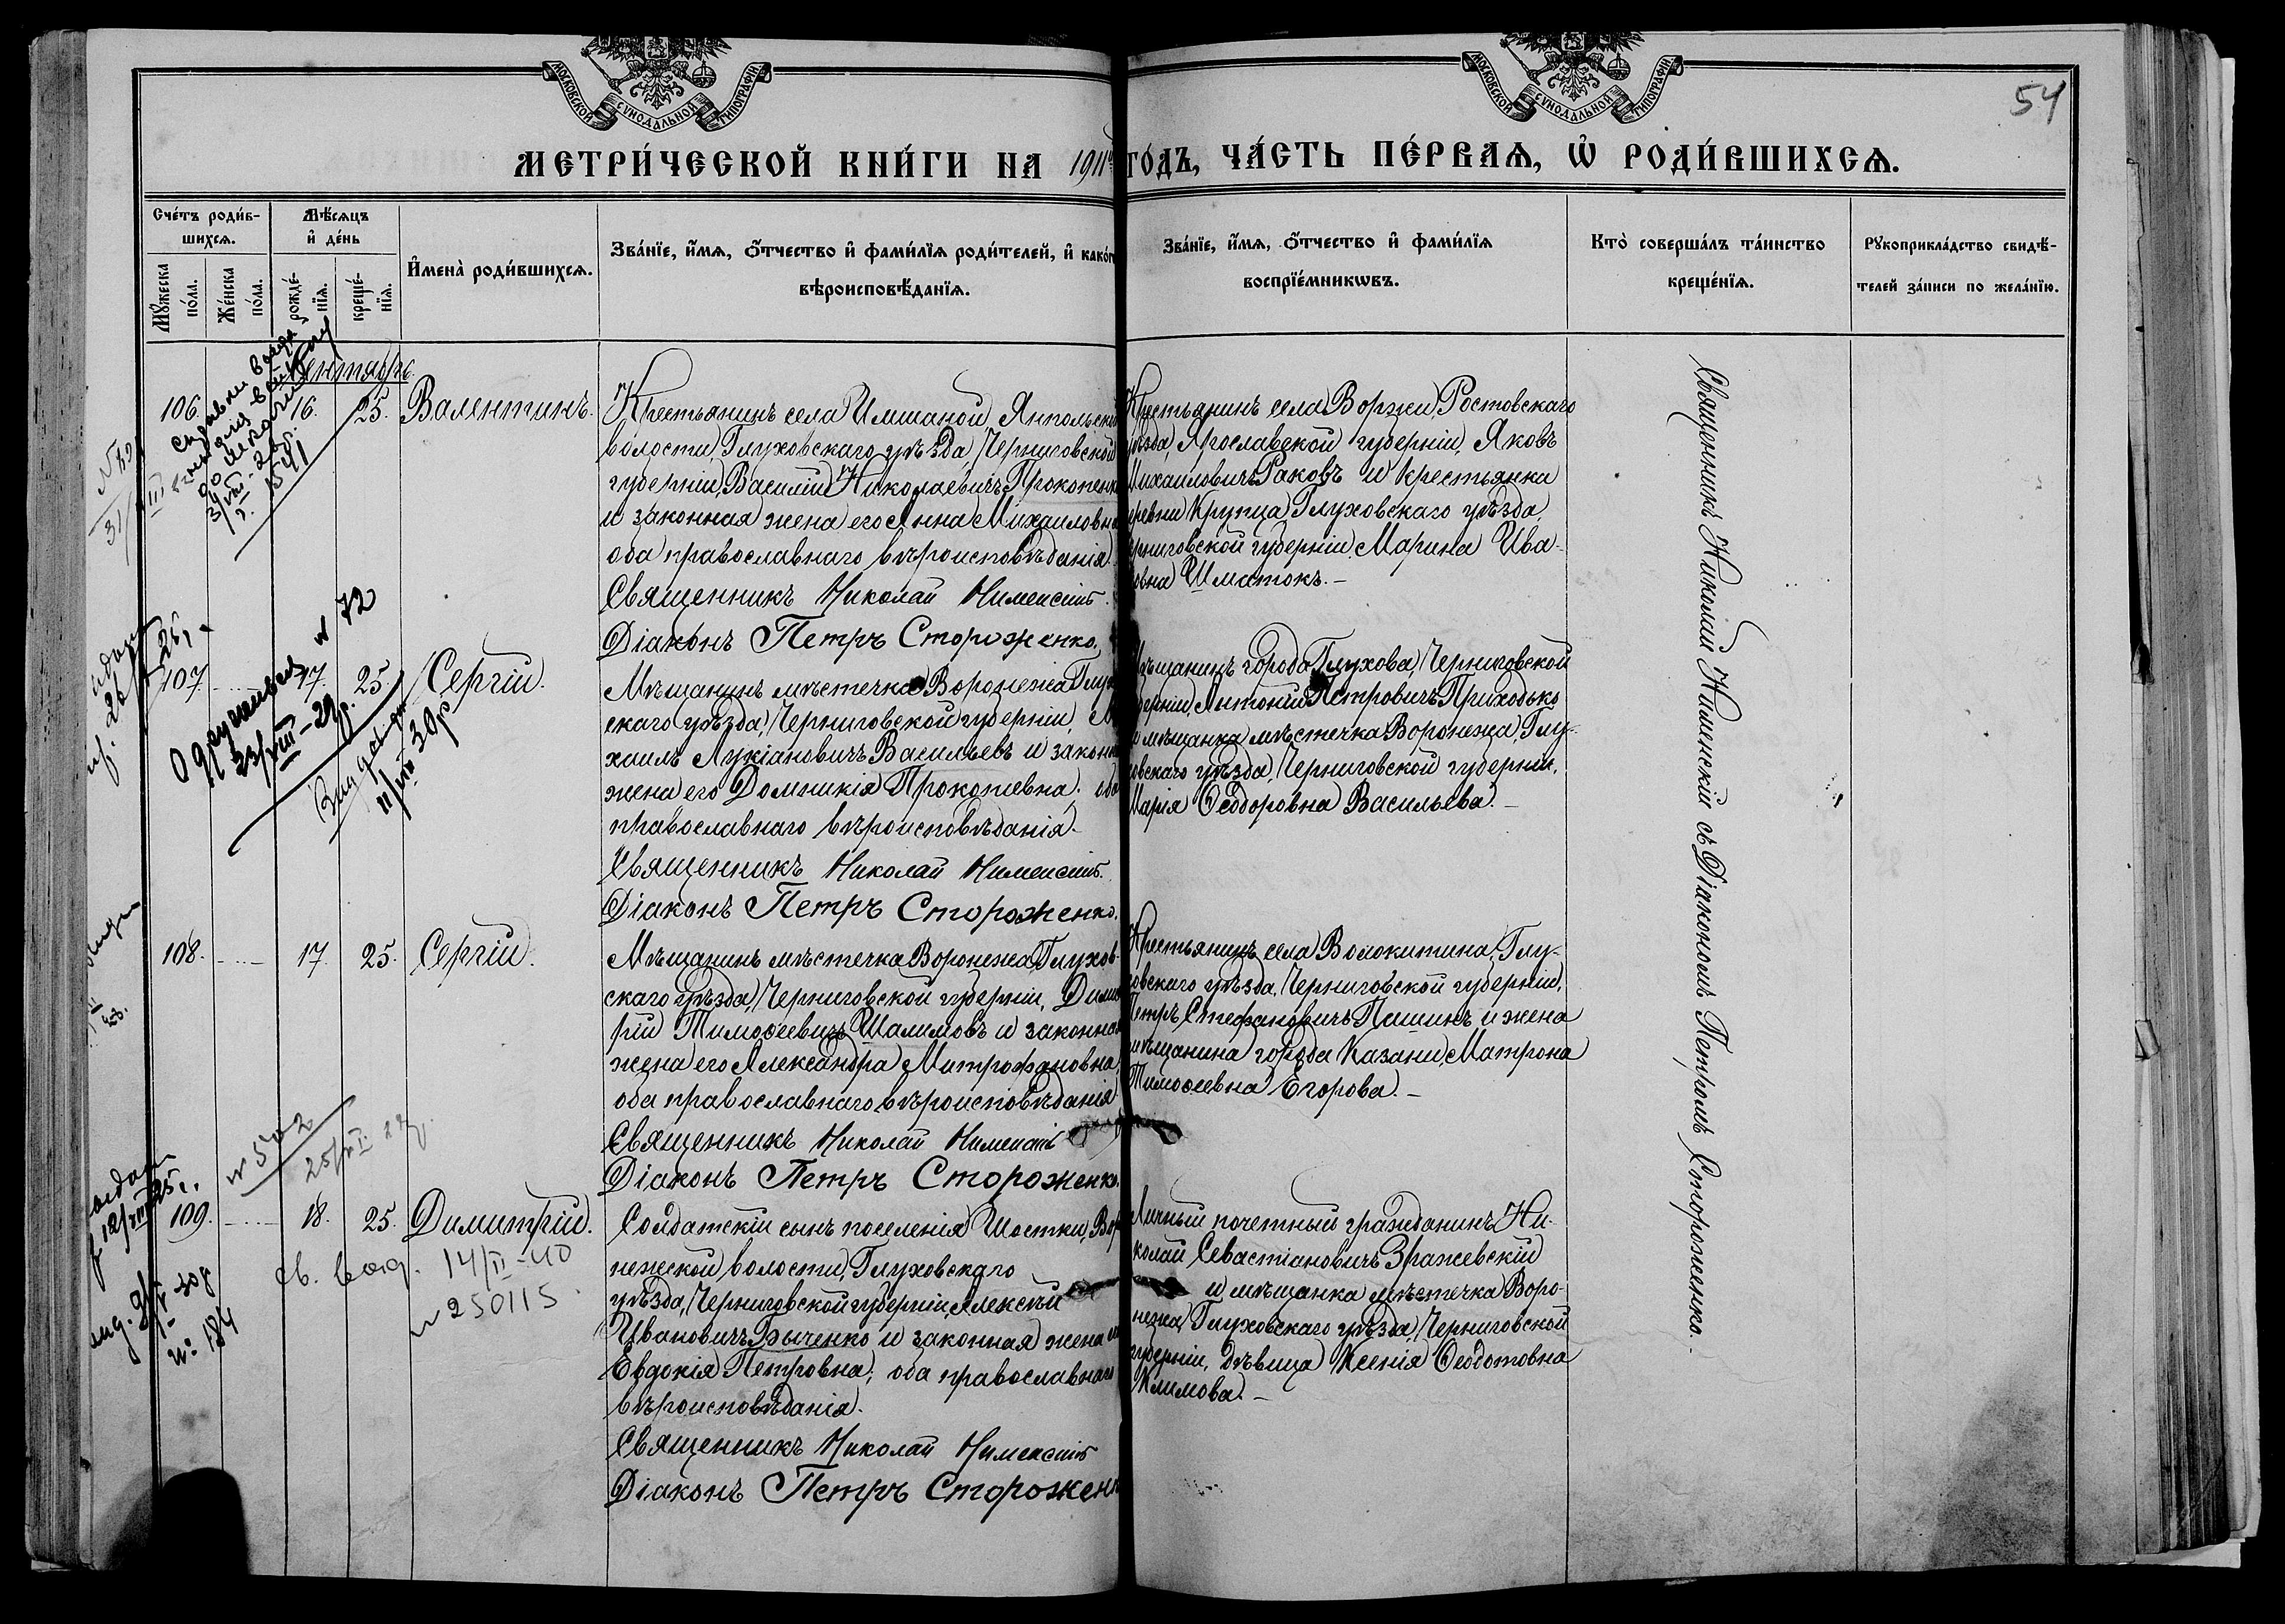 МОСКОВСКОЙ СѴНОДАЛЬНОЙ ТИПОГРАФІИ
МОСКОВСКОЙ СѴНОДАЛЬНОЙ ТИПОГРАФІИ
54
МЕТРИ́ЧЕСКОЙ КНИ́ГИ НА 1911й ГО́ДЪ, ЧА́СТЬ ПЕ́РВАѦ, Ѡ҆ РОДИ́ВШИХСѦ.
Сче́тъ роди́в-
шихсѧ.
Мꙋ́жеска по́ла.
Же́нска по́ла.
Мѣ́сѧцъ
и҆ де́нь
рожде́-
нїѧ.
креще́-
нїѧ.
И҆мена̀ роди́вшихсѧ.
Зва́нїе, и҆́мѧ, ѻ҆́тчество и҆ фами́лїѧ роди́телей, и҆ како́гѡ
вѣроисповѣ́данїѧ.
Зва́нїе, и҆́мѧ, ѻ҆́тчество и҆ фами́лїѧ
воспрїе́мникѡвъ.
Кто̀ соверша́лъ та́инство
креще́нїѧ.
Рꙋкоприкла́дство свидѣ́-
телей за́писи по жела́нїю.
Сентябрь.
106. 16. 25. Валентинъ.
Крестьянинъ села Имшаной, Янпольской
волости, Глуховскаго уѣзда, Черниговской
губерніи, Василій Николаевичъ Прокопенко
и законная жена его Анна Михаиловна
оба православнаго вѣроисповѣданія.
Священникъ Николай
Діаконъ Петръ Стороженко.
Крестьянинъ села Воржи, Ростовскаго
уѣзда, Ярославской губерніи, Яковъ
Михаиловичъ Раковъ и крестьянка
деревни Крупца Глуховскаго уѣзда,
Черниговской губерніи Марина Ива-
овна Шматокъ. –
107. 17. 25. Сергій.
Мѣщанинъ мѣстечка Воронежа Глухов
скаго уѣзда, Черниговской губерніи, Ми
хаилъ Лукіановичъ Васильевъ и законн
жена его Домникія Прокопіевна; оба
православнаго вѣроисповѣданія.
Священникъ Николай
Діаконъ Петръ Стороженко.
Мѣщанинъ города Глухова, Черниговской
губерніи, Антоній Петровичъ Приходько
и мѣщанка мѣстечка Воронежа, Глу-
ховскаго уѣзда, Черниговской губерніи,
Марія Ѳеодоровна Васильева. –
108. 17. 25. Сергій.
Мѣщанинъ мѣстечка Воронежа, Глухов-
скаго уѣзда, Черниговской губерніи, Димит
рій Тимоѳеевичъ Шалимовъ и законная
жена его Александра Митрофановна,
оба православнаго вѣроисповѣданія
Священникъ Николай
Діаконъ Петръ Стороженко.
Крестьянинъ села Волокитина, Глу-
ховскаго уѣзда, Черниговской губерніи,
Петръ Стефановичъ Пашинъ и жена
мѣщанина города Казани, Матрона
Тимоѳеевна Егорова. –
№ 502
109. 18. 25. Димитрій.
Солдатскій сынъ поселенія Шостки, Вор
нежской волости, Глуховскаго
уѣзда, Черниговской губерніи, Алексѣй
Ивановичъ Быченко и законная жена его
Евдокія Петровна; оба православнаго
вѣроисповѣданія.
Священникъ Николай
Діаконъ Петръ Стороженк
Личный почетный гражданинъ Ни-
колай Севастіановичъ Зражевскій
и мѣщанка мѣстечка Воро-
нежа, Глуховскаго уѣзда, Черниговской
губерніи, дѣвица Ксенія Ѳеодотовна
Климова. –
св. выд. 14/II-40
№ 250115
№ 184
№ 72
23/VIII-29р.
11/VII 30р
Священникъ Николай Нименскій съ Діакономъ Петромъ Стороженко.